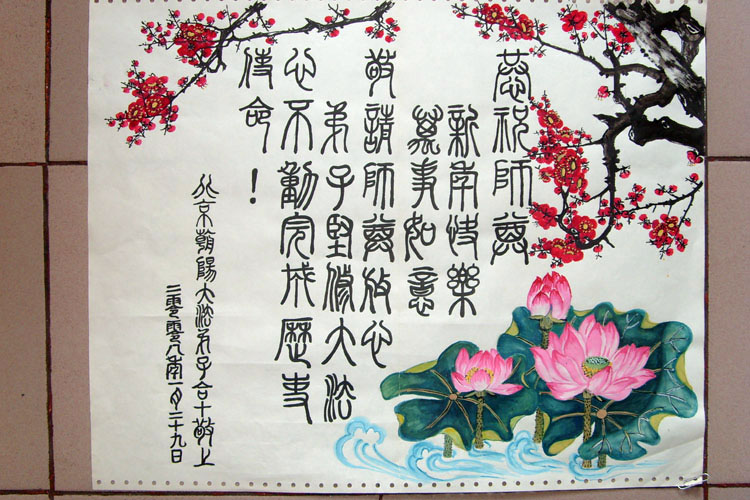 恭祝師尊
新年快樂
萬事如意
敬請師尊放心
弟子堅修大法
心不動完成歷史
使命！
北京朝陽大法弟子合十敬上
二零零八年一月二十九日